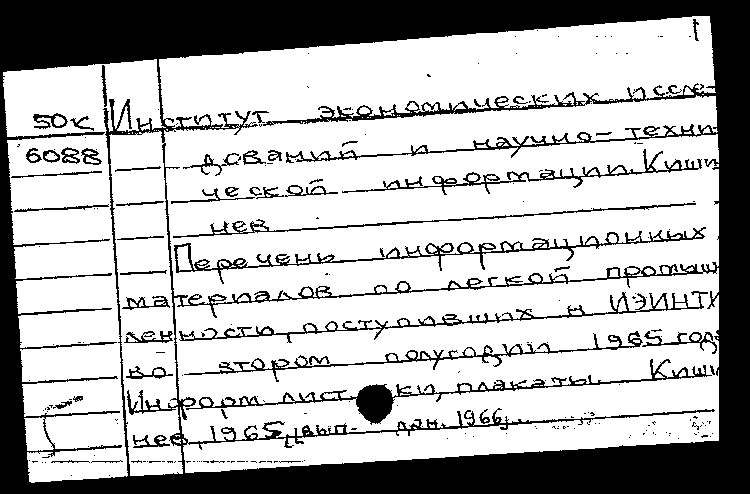 50к Институт экономических иссле-
6088 дований и научно-техни-
ческой информации. Киши-
нев
Перечень информационных
материалов по легкой промыш-
ленности, поступивших в ИЭИНТИ
во втором полугодии 1965 года
Информ. лист ки, плакаты. Киши-
нев, 1965, 1966